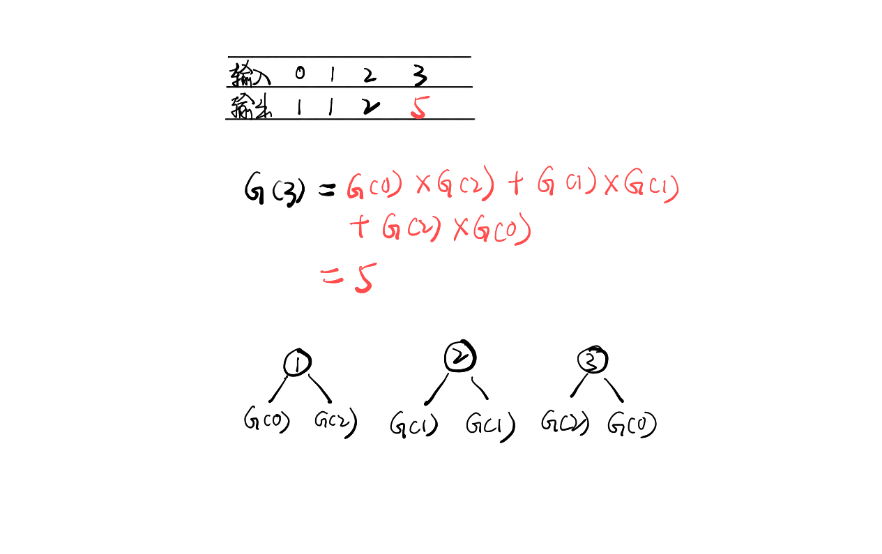 输入 0 1 2 3
输出 1 1 2 5
G(3) = G(0) × G(2) + G(1) × G(1)
+ G(2) × G(0)
= 5
1 2 3
G(0) G(2) G(1) G(1) G(2) G(0)